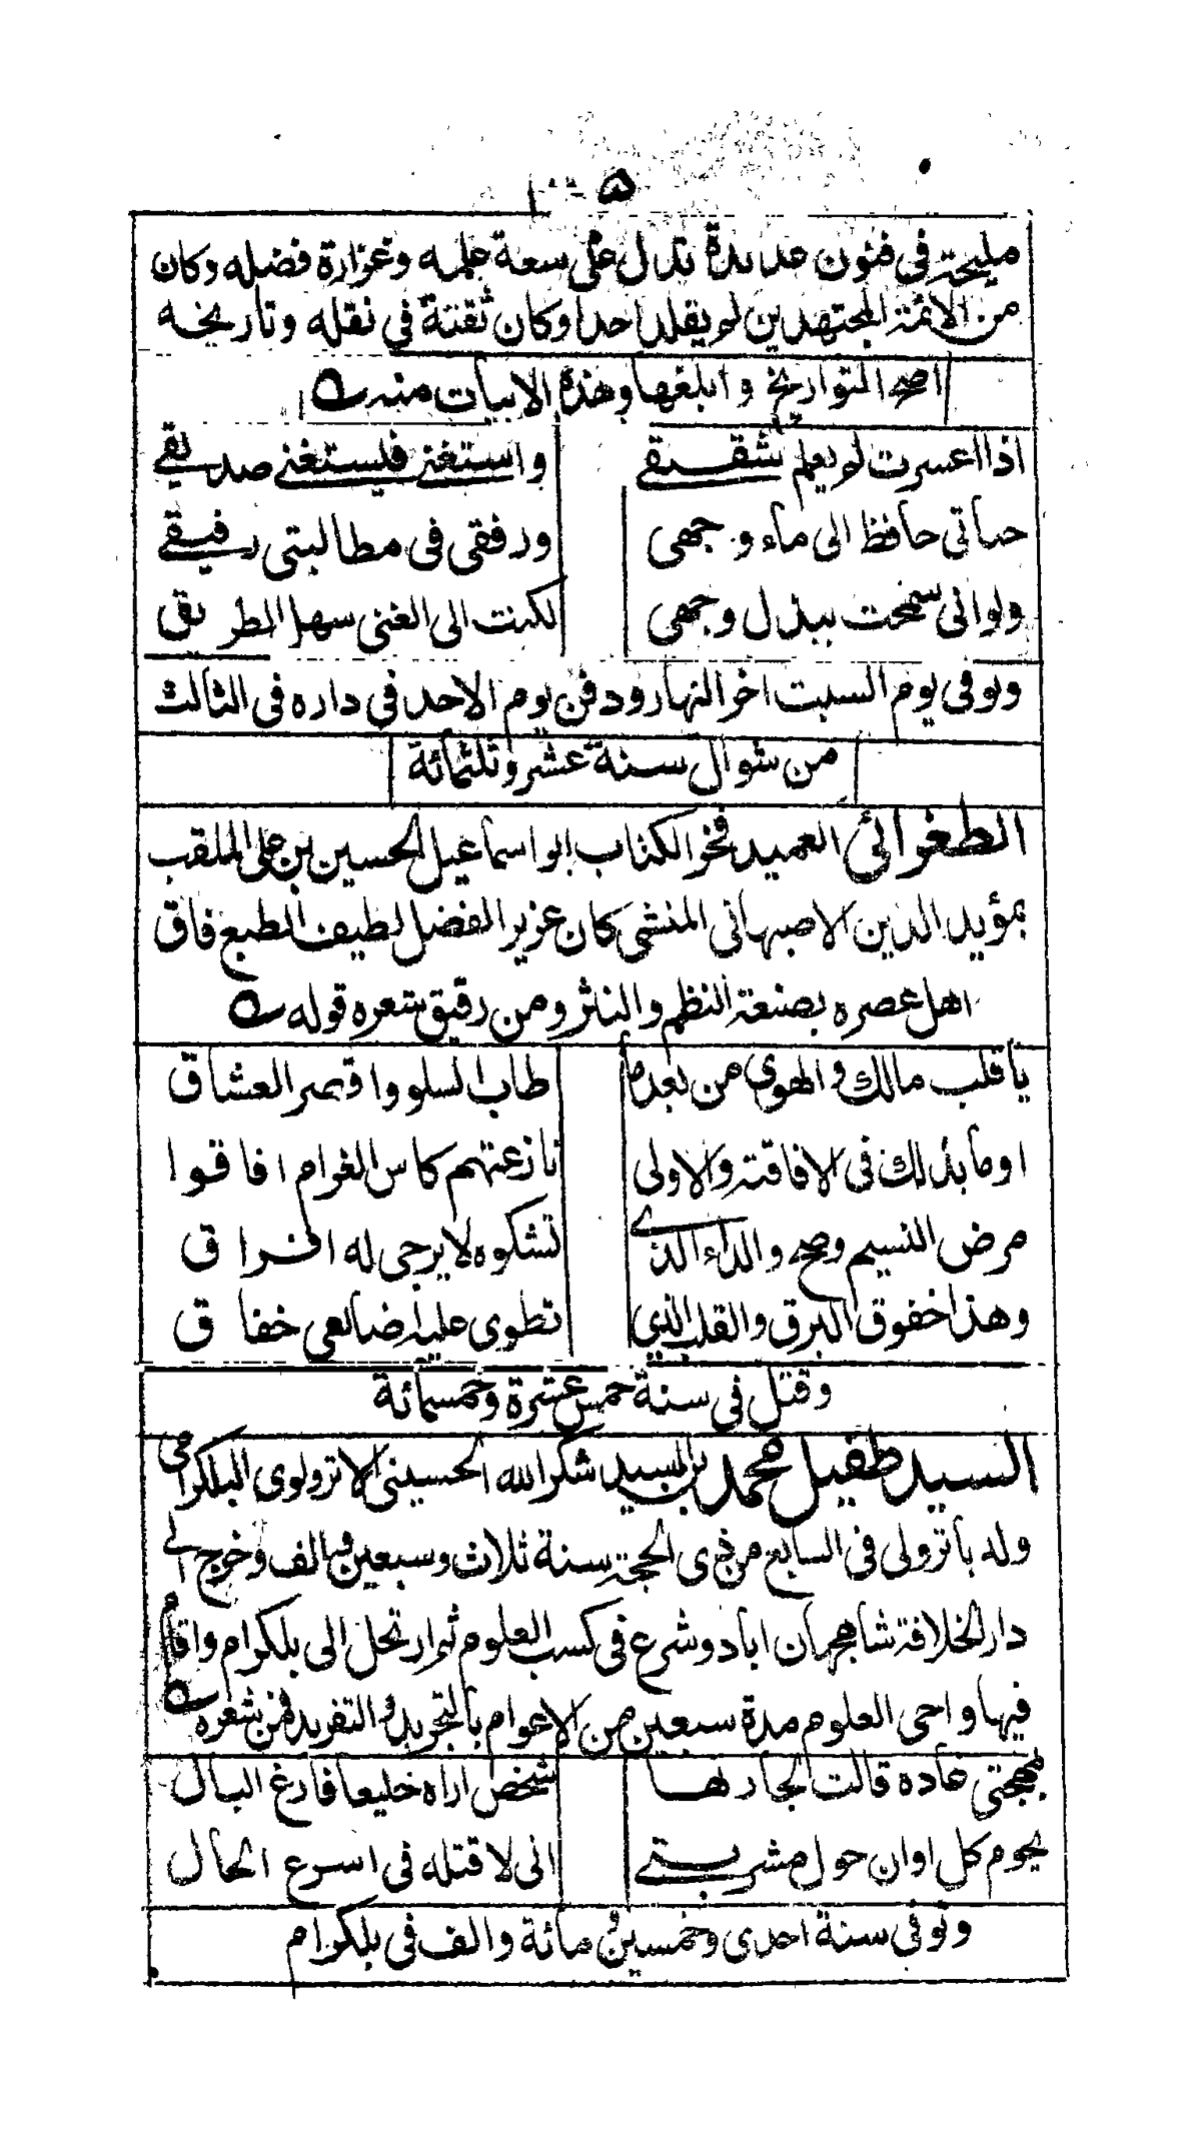 مليحة فى فنون عديدة تدل على سعة علمه وغزارة فضله وكان
من الائمة المجتهدين لم يقلد احدا وكان ثقة فى نقله وتاريخه
اصح التواريخ وابلغها وهذه الابيات منه
اذا اعسرت لم يعلم شقيقے واستغنے فيستغنے صديقے
حياتى حافظ الى ماء وجهى ورفقى فى مطالبتى رفيقے
ولو انى سمحت ببذل وجهى لكنت الى الغنى سهل الطريق
وتوفى يوم السبت اخر النهار ودفن يوم الاحد فى داره فى الثالث
من شوال سنة عشر وثلثمائة
الطغرائى العميد فخر الكتاب ابو اسماعيل الحسين بن على الملقب
بمؤيد الدين الاصبهانى المنشى كان عزيز الفضل لطيف الطبع فاق
اهل عصره بصنعة النظم والنثر ومن رقيق شعره قوله
يا قلب مالك والهوى من بعدما طاب السلو واقصر العشاق
اوما بدالك فى الافاقة والاولى نازعتهم كاس الغرام افاقوا
مرض النسيم وصح والداء الذى تشكوه لا يرجى له افراق
وهذا خفوق البرق والقلب الذى تطوى عليه اضالعى خفاق
وقتل فى سنة خمس عشرة وخمسمائة
السيد طفيل محمد بن السيد شكر الله الحسينى الاترولوى البلكرامى
ولد باترولى فى السابع من ذى الحجة سنة ثلاث وسبعين والف وخرج الى
دار الخلافة شاهجهان اباد وشرع فى كسب العلوم ثم ارتحل الى بلكرام واقام
فيها واحى العلوم مدة سبعين من الاعوام بالتجريد والتفريد فمن شعره
بمهجتى غادة قالت لجار لها شخص اراه خليعا فارغ البال
يحوم كل اوان حول مشربتے انى لاقتله فى اسرع الحال
وتوفى سنة احدى وخمسين ومائة والف فى بلكرام